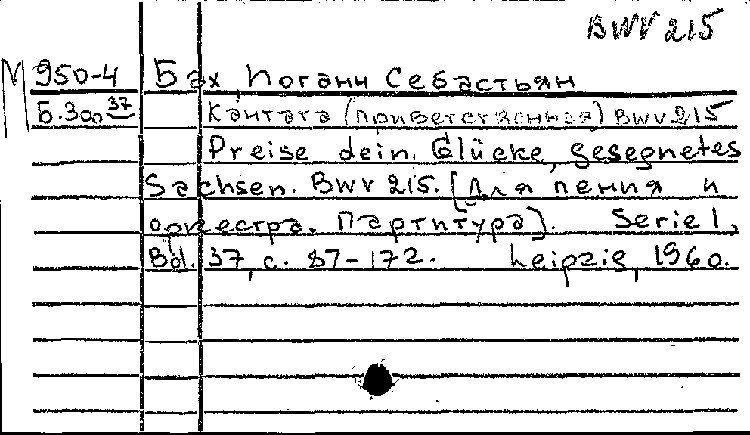 BWV 215
М 950-4 Бах, Иоганн Себастьян
Б.300 37 Кантата (приветственная) BWV 215
Preise dein Glücke, gesegnetes
Sachsen. BWV 215. [Для пения и
оркестра. Партитура]. Serie I,
Bd. 37, с. 87-172. Leipzig, 1960.